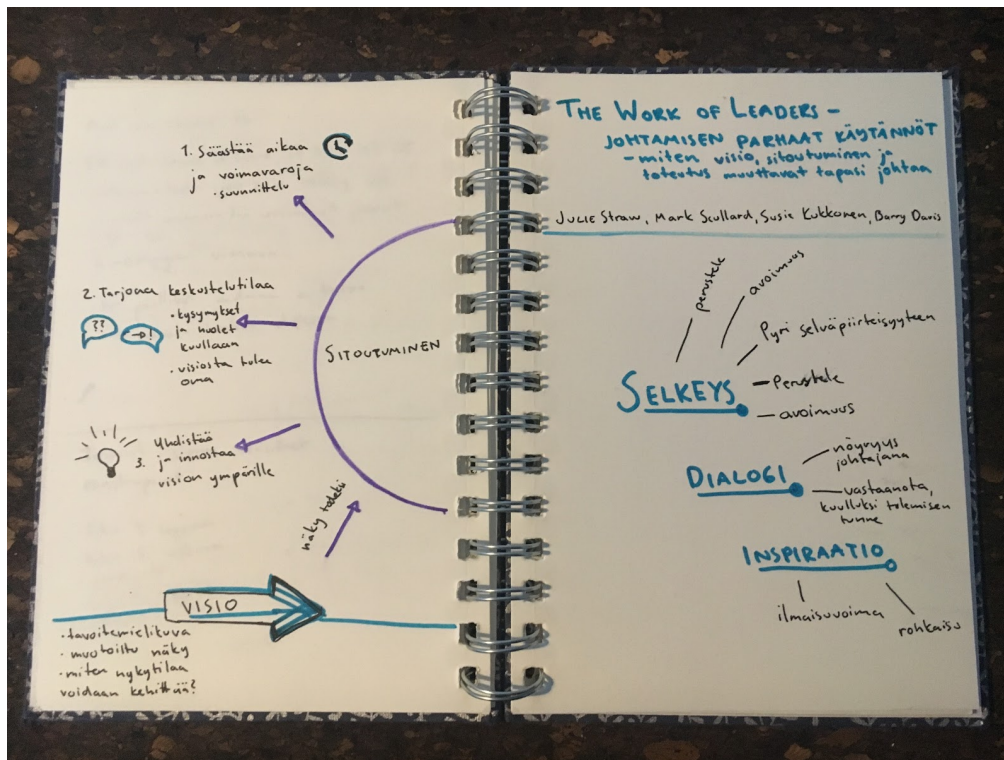 1. Säästää aikaa
ja voimavaroja
• suunnittelu
2. Tarjoaa keskustelutilaa
• kysymykset
ja huolet
kuullaan
• visiosta tulee
oma
??
→!
3. Yhdistää
ja innostaa
vision ympärille
SITOUTUMINEN
näky toteksi
VISIO
• tavoitemielikuva
• muotoiltu näky
• miten nykytilaa
voidaan kehittää?
THE WORK OF LEADERS –
JOHTAMISEN PARHAAT KÄYTÄNNÖT
– miten visio, sitoutuminen ja
toteutus muuttavat tapasi johtaa
JULIE STRAW, MARK SCULLARD, SUSIE KUKKONEN, BARRY DAVIS
perustele
avoimuus
Pyri selväpiirteisyyteen
SELKEYS
Perustele
avoimuus
DIALOGI
nöyryys
johtajana
vastaanota,
kuulluksi tulemisen
tunne
INSPIRAATIO
ilmaisuvoima
rohkaisu